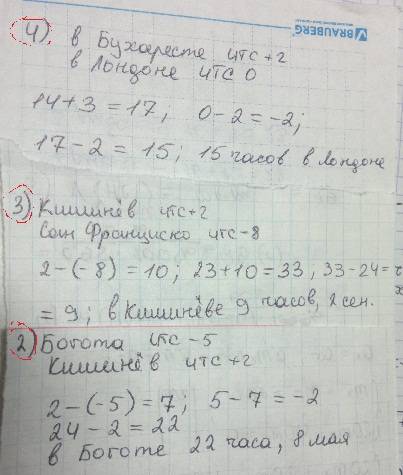 BRAUBERG
4) в Бухаресте UTC +2
в Лондоне UTC 0
14+3 = 17; 0-2 = -2;
17-2 = 15; 15 часов в Лондоне
3) Кишинёв UTC+2
Сан Франциско UTC-8
2-(-8) = 10; 23+10 = 33, 33-24=
= 9; в Кишинёве 9 часов, 2 сен.
2) Богота UTC -5
Кишинёв UTC +2
2-(-5) = 7; 5-7 = -2
24-2 = 22
в Боготе 22 часа, 8 мая